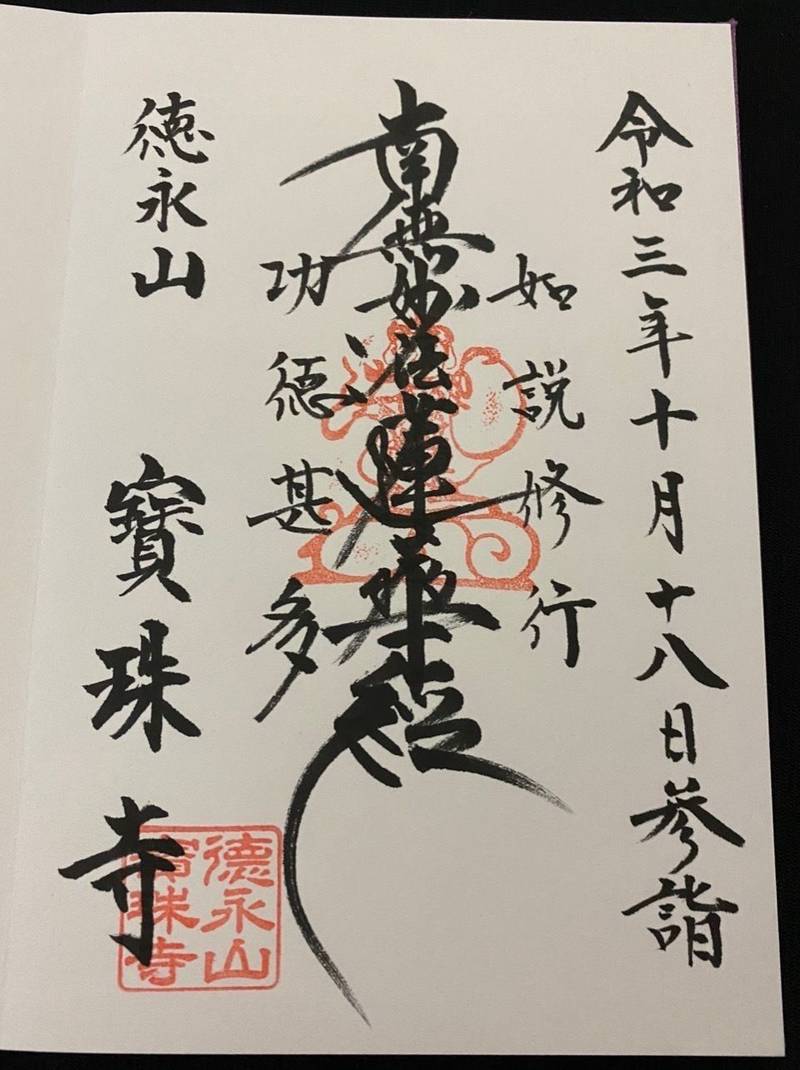 令和三年十月十八日参詣
如説修行
南無妙法蓮華経
功徳甚多
徳永山
寶珠寺
徳永山
寶珠寺